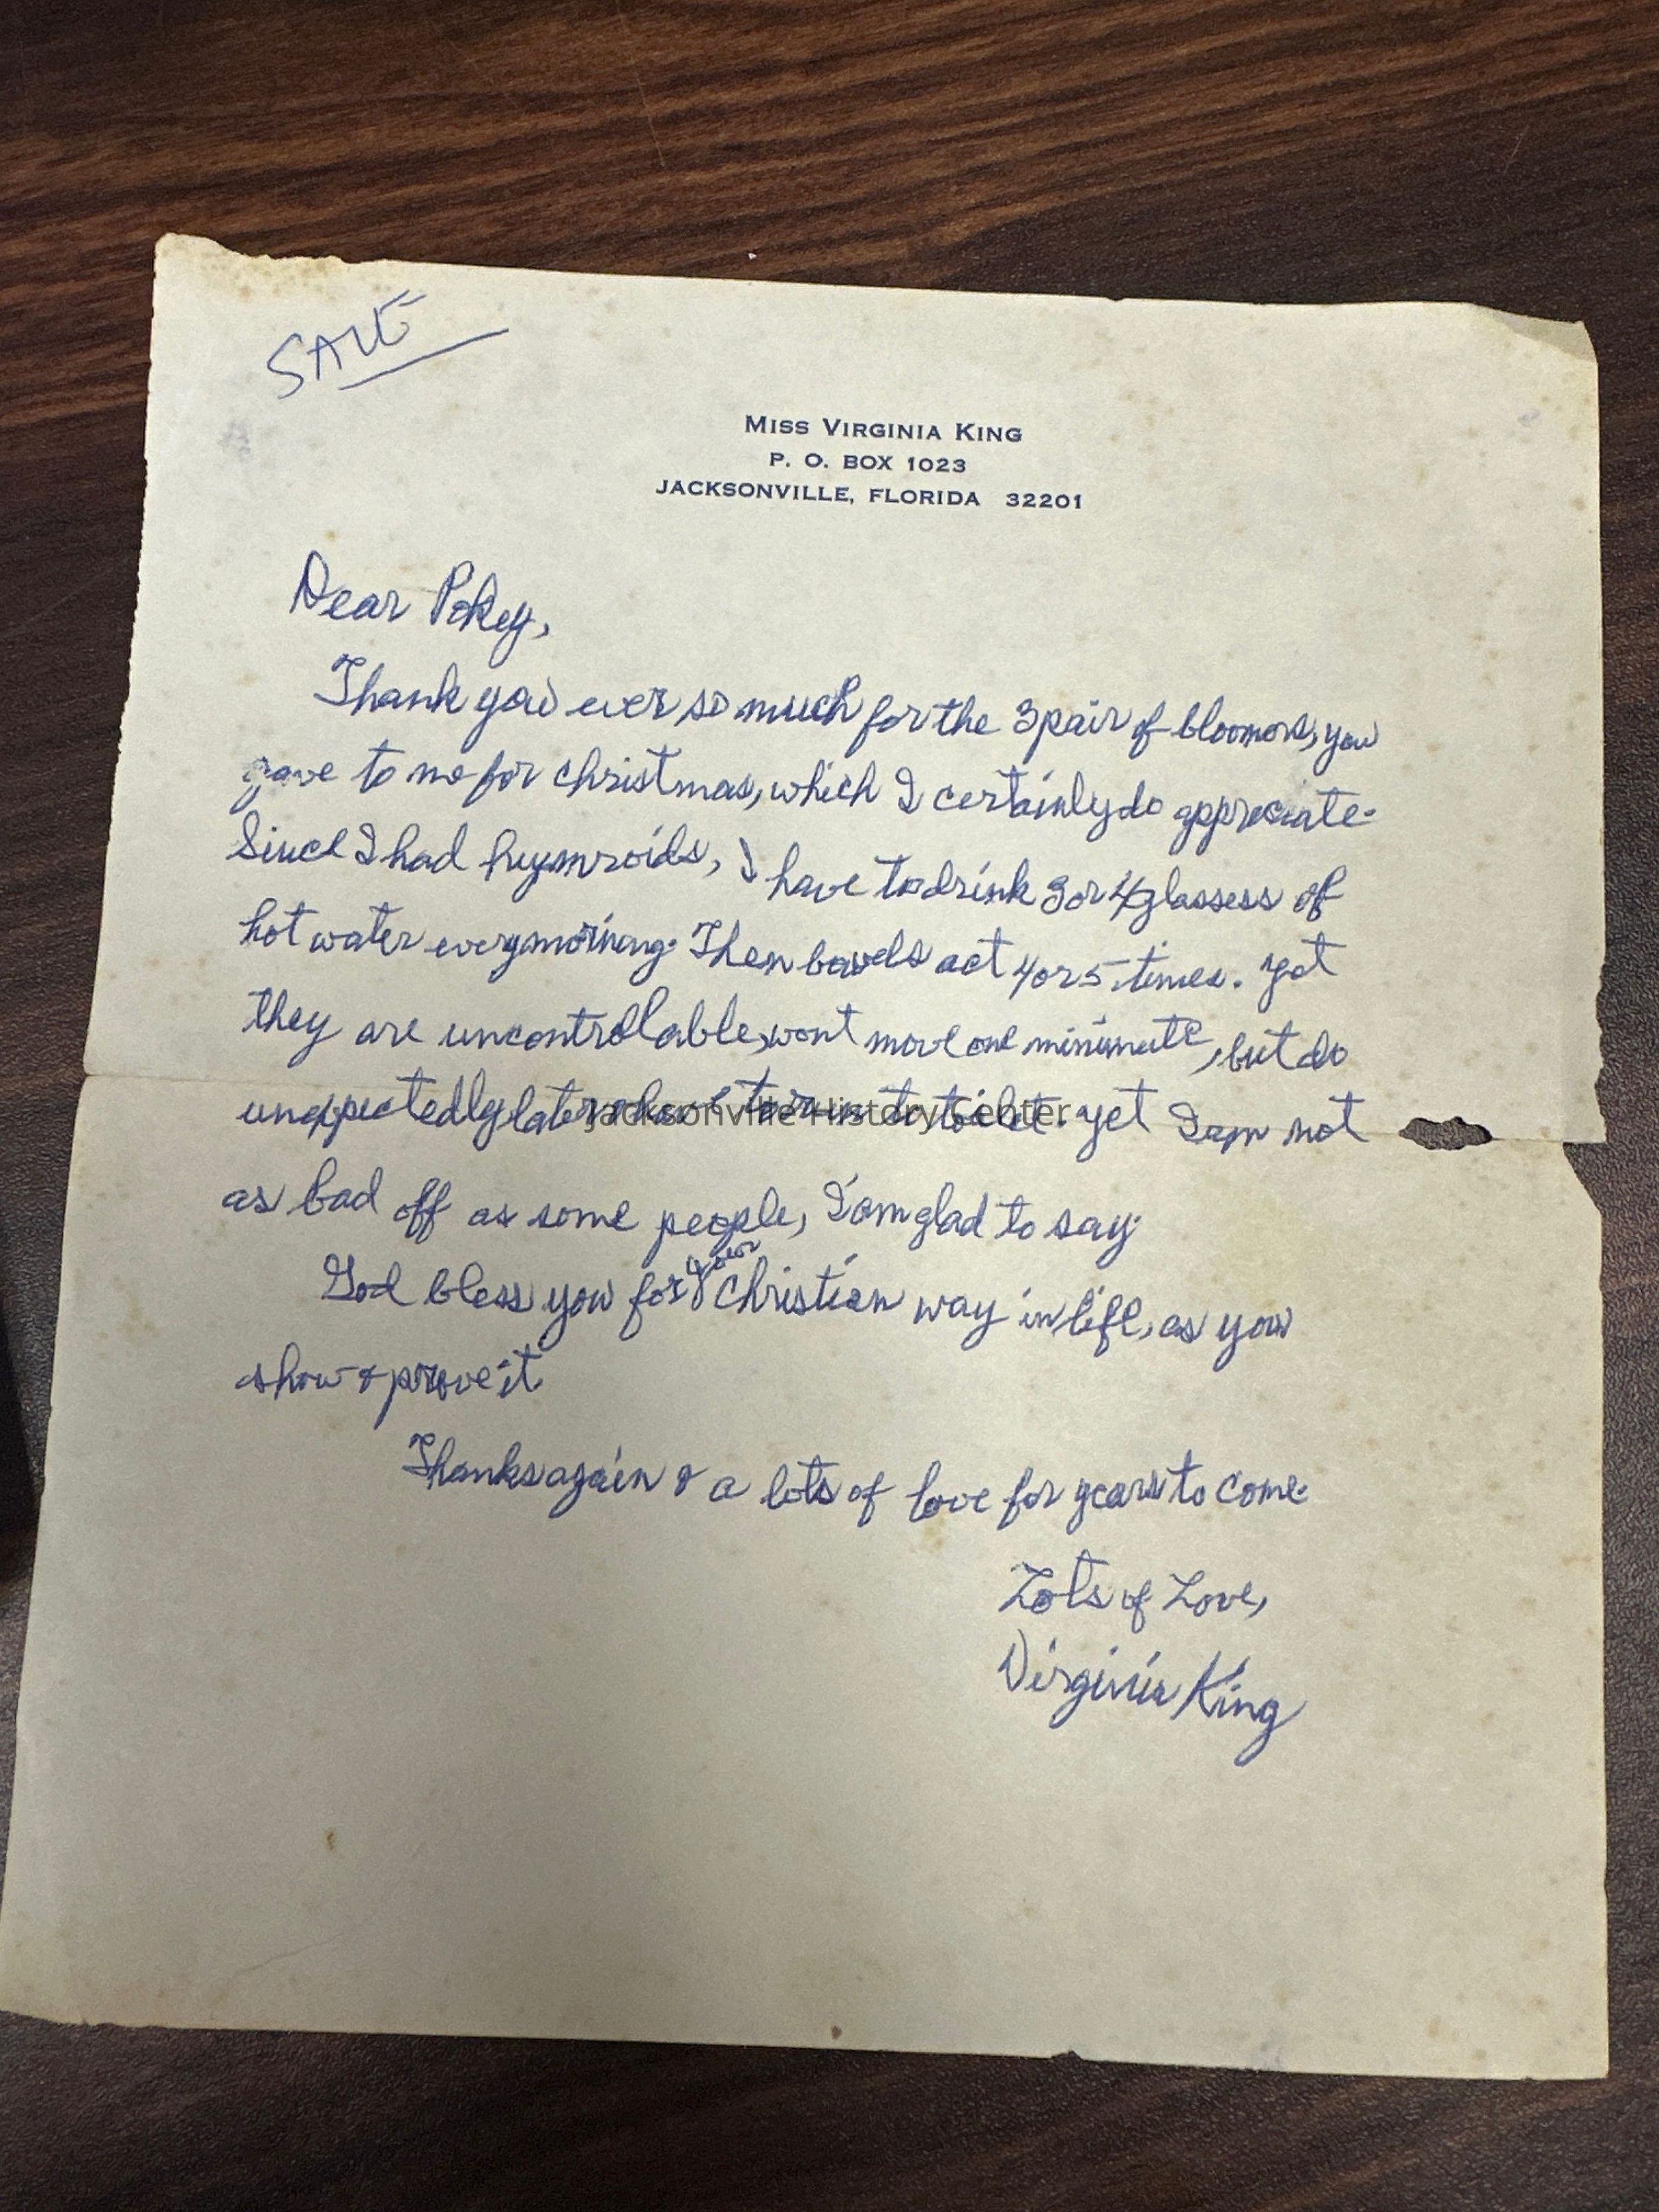 SAVE
MISS VIRGINIA KING
P. O. BOX 1023
JACKSONVILLE, FLORIDA 32201
Dear Pokey,
Thank you ever so much for the 3 pair of bloomors, you
gave to me for christmas, which I certainly do appreciate.
Since I had heymroids, I have to drink 3 or 4 glassess of
hot water every morinang. Then bowels act 4 or 5 times. Yet
they are uncontrolable, wont move one minimute, but do
unexpectedly later & have to run to toilet. Yet I am not
Jacksonville History Center
as bad off as some people, I am glad to say.
God bless you for your Christian way in life, as you
show & prove it.
Thanks again & a lots of love for years to come.
Lots of Love,
Virginia King